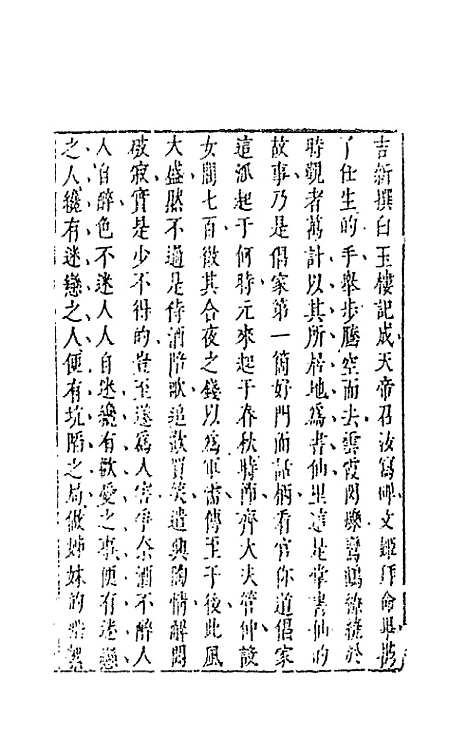 吉新撰白玉樓記成天帝召汝寫碑文姬拜命畢攜
了任生的手舉步騰空而去雲霞閃爍鸞鶴繚繞於
時觀者萬計以其所居地爲書仙里這是掌書仙的
故事乃是倡家第一箇好門面話柄看官你道倡家
這派起于何時元來起于春秋時節齊大夫管仲設
女閭七百徵其合夜之錢以爲軍需傳至于後此風
大盛然不過是侍酒陪歌追歡買笑遣興陶情解悶
破寂實是少不得的豈至遂爲人害爭奈酒不醉人
人自醉色不迷人人自迷纔有歡愛之事便有迷戀
之人纔有迷戀之人便有坑陷之局做姊妹的飛絮